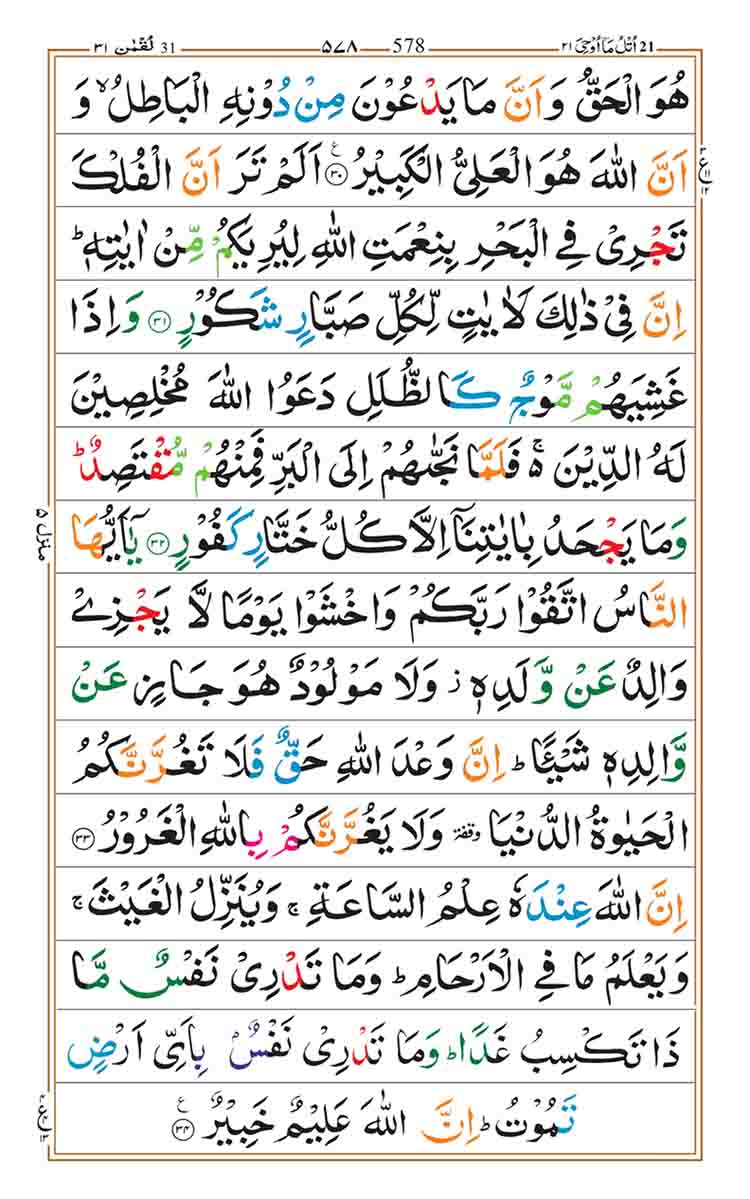 لُقْمٰن ٣١ 31 ٥٧٨ 578 اُتْلُ مَاۤ اُوْحِیَ ٢١ 21
هُوَ الْحَقُّ وَ اَنَّ مَا یَدْعُوْنَ مِنْ دُوْنِهِ الْبَاطِلُ ۙ وَ
اَنَّ اللّٰهَ هُوَ الْعَلِیُّ الْكَبِیْرُ ۧ‏﴿۳۰﴾ اَلَمْ تَرَ اَنَّ الْفُلْكَ
تَجْرِیْ فِی الْبَحْرِ بِنِعْمَتِ اللّٰهِ لِیُرِیَكُمْ مِّنْ اٰیٰتِهٖ ؕ
اِنَّ فِیْ ذٰلِكَ لَاٰیٰتٍ لِّكُلِّ صَبَّارٍ شَكُوْرٍ ﴿۳۱﴾ وَ اِذَا
غَشِیَهُمْ مَّوْجٌ كَالظُّلَلِ دَعَوُا اللّٰهَ مُخْلِصِیْنَ
لَهُ الدِّیْنَ ۚ۬ فَلَمَّا نَجّٰىهُمْ اِلَی الْبَرِّ فَمِنْهُمْ مُّقْتَصِدٌ ؕ
وَ مَا یَجْحَدُ بِاٰیٰتِنَاۤ اِلَّا كُلُّ خَتَّارٍ كَفُوْرٍ ﴿۳۲﴾ یٰۤاَیُّهَا
النَّاسُ اتَّقُوْا رَبَّكُمْ وَ اخْشَوْا یَوْمًا لَّا یَجْزِیْ
وَالِدٌ عَنْ وَّلَدِهٖ ؗ وَ لَا مَوْلُوْدٌ هُوَ جَازٍ عَنْ
وَّالِدِهٖ شَیْـًٔا ؕ اِنَّ وَعْدَ اللّٰهِ حَقٌّ فَلَا تَغُرَّنَّكُمُ
الْحَیٰوةُ الدُّنْیَا وقفة وَ لَا یَغُرَّنَّكُمْ بِاللّٰهِ الْغَرُوْرُ ﴿۳۳﴾
اِنَّ اللّٰهَ عِنْدَهٗ عِلْمُ السَّاعَةِ ۚ وَ یُنَزِّلُ الْغَیْثَ ۚ
وَ یَعْلَمُ مَا فِی الْاَرْحَامِ ؕ وَ مَا تَدْرِیْ نَفْسٌ مَّا
ذَا تَكْسِبُ غَدًا ؕ وَ مَا تَدْرِیْ نَفْسٌۢ بِاَیِّ اَرْضٍ
تَمُوْتُ ؕ اِنَّ اللّٰهَ عَلِیْمٌ خَبِیْرٌ ۧ‏﴿۳۴﴾
منزل ٥